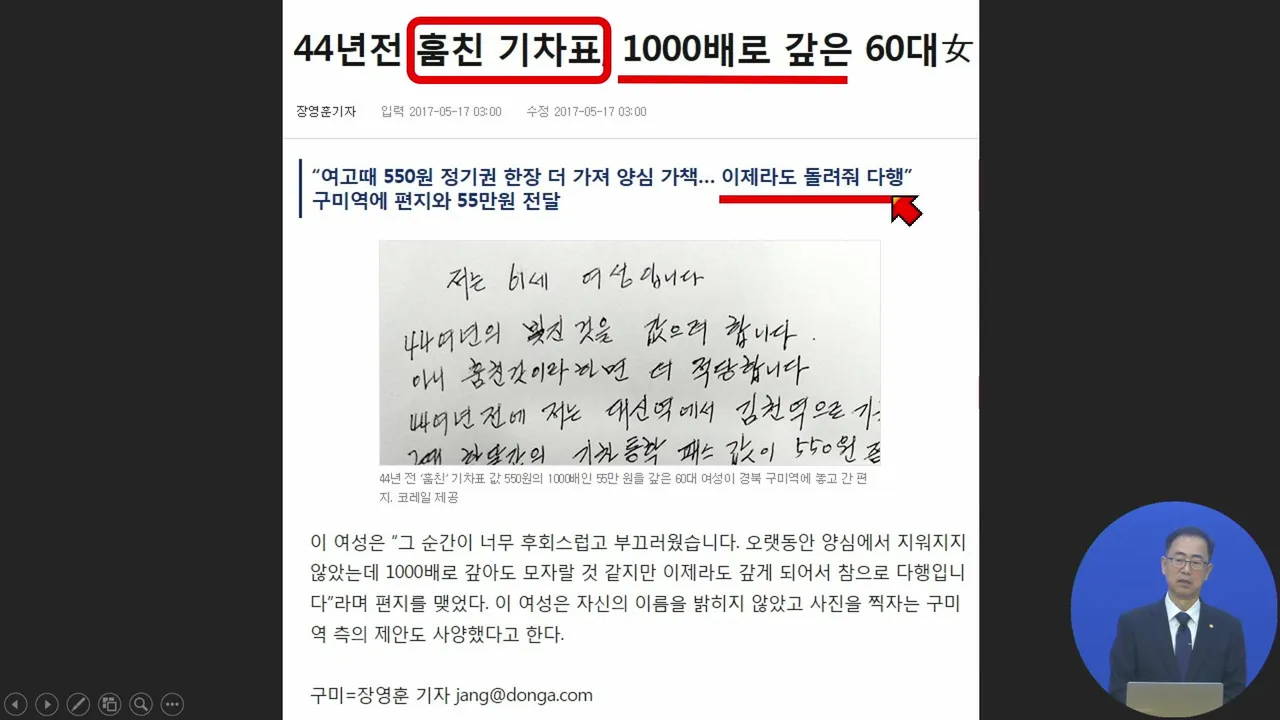 44년전 훔친 기차표, 1000배로 갚은 60대女
장영훈기자 입력 2017-05-17 03:00 수정 2017-05-17 03:00
“여고때 550원 정기권 한장 더 가져 양심 가책… 이제라도 돌려줘 다행”
구미역에 편지와 55만원 전달
저는 61세 여성입니다
44여년의 빚진 것을 값으려 합니다.
아니 훔친것이라 하면 더 적당합니다
44여년 전에 저는 대신역에서 김천역으로
기차통학 패스 값이 550원
44년 전 ‘훔친’ 기차표 값 550원의 1000배인 55만 원을 갚은 60대 여성이 경북 구미역에 놓고 간 편
지. 코레일 제공
이 여성은 “그 순간이 너무 후회스럽고 부끄러웠습니다. 오랫동안 양심에서 지워지지
않았는데 1000배로 갚아도 모자랄 것 같지만 이제라도 갚게 되어서 참으로 다행입니
다”라며 편지를 맺었다. 이 여성은 자신의 이름을 밝히지 않았고 사진을 찍자는 구미
역 측의 제안도 사양했다고 한다.
구미=장영훈 기자 jang@donga.com